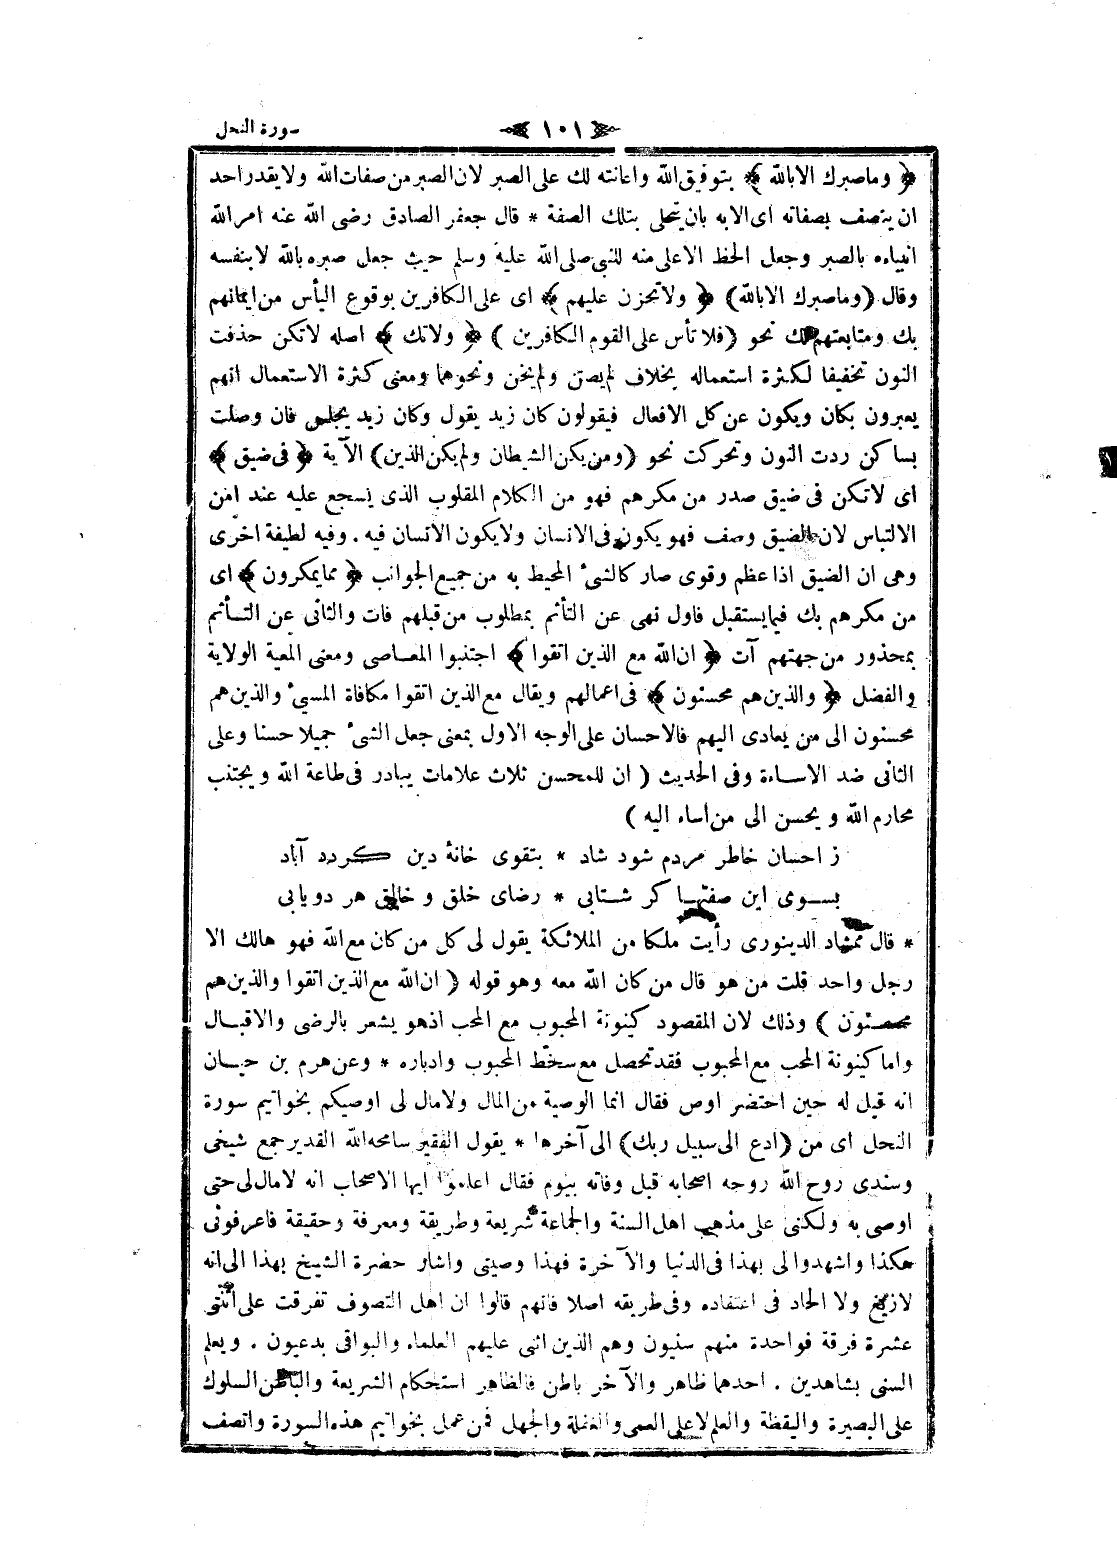 سورة النحل
١٠١
﴿ وما صبرك الا بالله ﴾ بتوفيق الله واعانته لك على الصبر لان الصبر من صفات الله ولا يقدر احد
ان يتصف بصفاته اى الا به بان يتحلى بتلك الصفة * قال جعفر الصادق رضى الله عنه امر الله
انبياءه بالصبر وجعل الحظ الاعلى منه للنبى صلى الله عليه وسلم حيث جعل صبره بالله لا بنفسه
وقال (وما صبرك الا بالله) ﴿ ولا تحزن عليهم ﴾ اى على الكافرين بوقوع اليأس من ايمانهم
بك ومتابعتهم لك نحو (فلا تأس على القوم الكافرين ) ﴿ ولا تك ﴾ اصله لا تكن حذفت
النون تخفيفا لكثرة استعماله بخلاف لم يصن ولم يخن ونحوهما ومعنى كثرة الاستعمال انهم
يعبرون بكان ويكون عن كل الافعال فيقولون كان زيد يقول وكان زيد يجلس فان وصلت
بساكن ردت النون وتحركت نحو (ومن يكن الشيطان ولم يكن الذين) الآية ﴿ فى ضيق ﴾
اى لا تكن فى ضيق صدر من مكرهم فهو من الكلام المقلوب الذى يسجع عليه عند امن
الالتباس لان الضيق وصف فهو يكون فى الانسان ولا يكون الانسان فيه . وفيه لطيفة اخرى
وهى ان الضيق اذا عظم وقوى صار كالشىء المحيط به من جميع الجوانب ﴿ مما يمكرون ﴾ اى
من مكرهم بك فيما يستقبل فاول نهى عن التألم بمطلوب من قبلهم فات والثانى عن التألم
بمحذور من جهتهم آت ﴿ ان الله مع الذين اتقوا ﴾ اجتنبوا المعاصى ومعنى المعية الولاية
والفضل ﴿ والذين هم محسنون ﴾ فى اعمالهم ويقال مع الذين اتقوا مكافاة المسيئ والذين هم
محسنون الى من يعادى اليهم فالاحسان على الوجه الاول بمعنى جعل الشىء جميلا حسنا وعلى
الثانى ضد الاساءة وفى الحديث ( ان للمحسن ثلاث علامات يبادر فى طاعة الله ويجتنب
محارم الله ويحسن الى من اساء اليه )
ز احسان خاطر مردم شود شاد * بتقوى خانهٔ دين كردد آباد
بسوى اين صفتها كر شتابى * رضاى خلق و خالق هر دو يابى
* قال ممشاد الدينورى رأيت ملكا من الملائكة يقول لى كل من كان مع الله فهو هالك الا
رجل واحد قلت من هو قال من كان الله معه وهو قوله ( ان الله مع الذين اتقوا والذين هم
محسنون ) وذلك لان المقصود كينونة المحبوب مع المحب اذ هو يشعر بالرضى والاقبال
واما كينونة المحب مع المحبوب فقد تحصل مع سخط المحبوب وادباره * وعن هرم بن حيان
انه قيل له حين احتضر اوص فقال انما الوصية من المال ولا مال لى اوصيكم بخواتيم سورة
النحل اى من (ادع الى سبيل ربك) الى آخرها * يقول الفقير سامحه الله القدير جمع شيخى
وسندى روح الله روحه اصحابه قبل وفاته بيوم فقال اعلموا ايها الاصحاب انه لا مال لى حتى
اوصى به ولكنى على مذهب اهل السنة والجماعة شريعة وطريقة ومعرفة وحقيقة فاعرفونى
هكذا واشهدوا لى بهذا فى الدنيا والآخرة فهذا وصيتى واشار حضرة الشيخ بهذا الى انه
لا زيغ ولا الحاد فى اعتقاده وفى طريقه اصلا فانهم قالوا ان اهل التصوف تفرقت على اثنتى
عشرة فرقة فواحدة منهم سنيون وهم الذين اثنى عليهم العلماء والبواقى بدعيون . ويعلم
السنى بشاهدين . احدهما ظاهر والآخر باطن فالظاهر استحكام الشريعة والباطن السلوك
على البصيرة واليقظة والعلم لا على العمى والغفلة والجهل فمن عمل بخواتيم هذه السورة واتصف